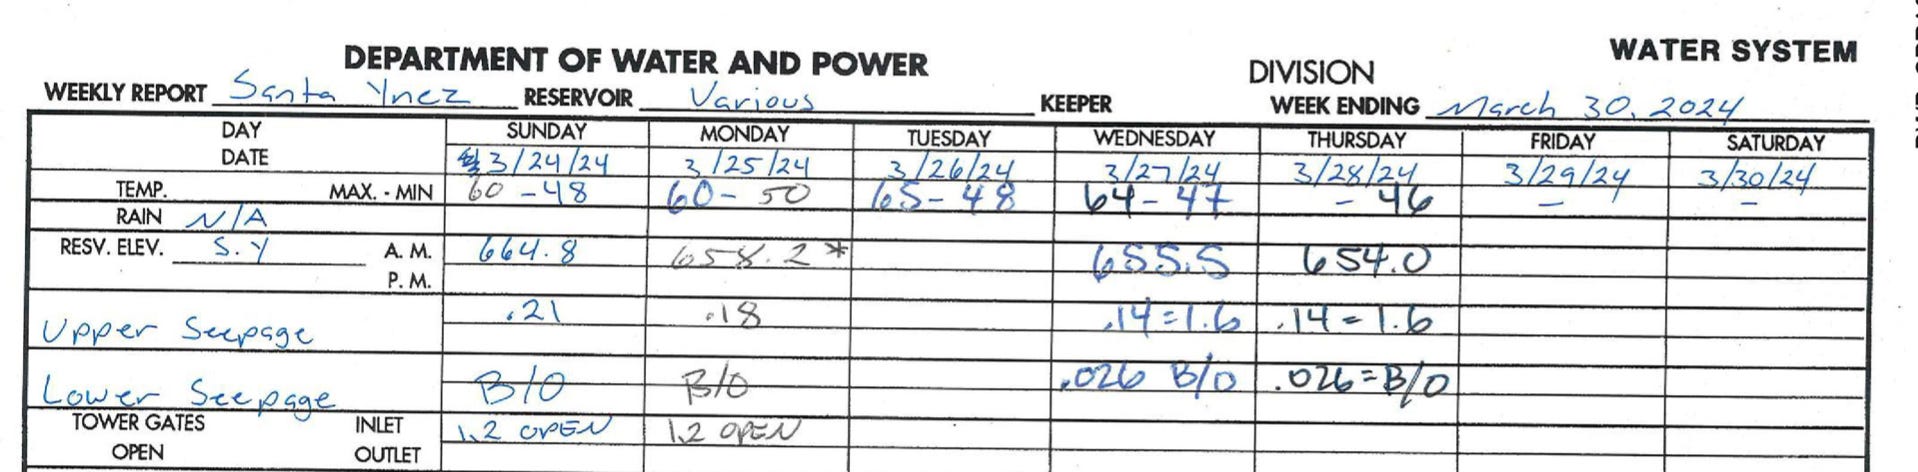 WATER SYSTEM
DEPARTMENT OF WATER AND POWER
DIVISION
WEEKLY REPORT Santa Ynez RESERVOIR Various KEEPER WEEK ENDING March 30, 2024
DAY SUNDAY MONDAY TUESDAY WEDNESDAY THURSDAY FRIDAY SATURDAY
DATE 3/24/24 3/25/24 3/26/24 3/27/24 3/28/24 3/29/24 3/30/24
TEMP. MAX. - MIN 60 - 48 60 - 50 65 - 48 64 - 47 - 46 - -
RAIN N/A
RESV. ELEV. S.Y A. M. 664.8 658.2* 655.5 654.0
P. M.
Upper Seepage .21 .18 .14=1.6 .14=1.6
Lower Seepage B/O B/O .026 B/O .026=B/O
TOWER GATES INLET 1,2 OPEN 1,2 OPEN
OPEN OUTLET